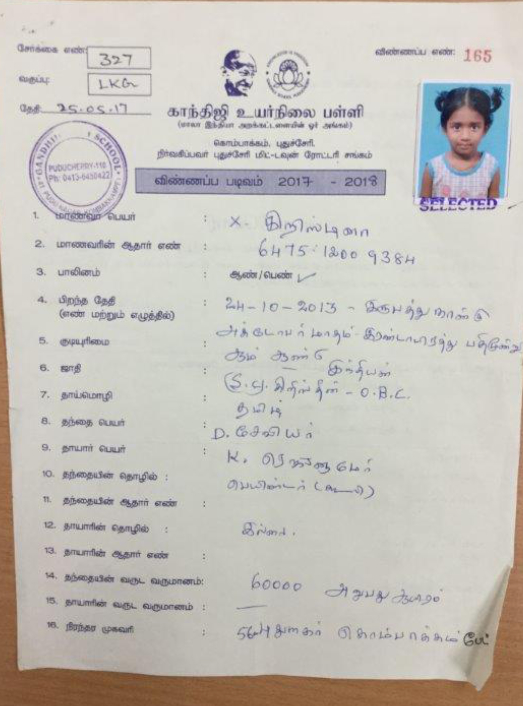 சேர்க்கை எண்: 327
விண்ணப்ப எண்: 165
வகுப்பு: LKG
தேதி 25.05.17
காந்திஜி உயர்நிலை பள்ளி
(மாலா இந்தியா அறக்கட்டளையின் ஓர் அங்கம்)
கொம்பாக்கம், புதுச்சேரி.
நிர்வகிப்பவர் புதுச்சேரி மிட்-டவுன் ரோட்டரி சங்கம்
SCHOOL
PUDUCHERRY-110
Ph: 0413-6459422
விண்ணப்ப படிவம் 2017 - 2018
SELECTED
1. மாணவர் பெயர் : X. கிறிஸ்டினா
2. மாணவரின் ஆதார் எண் : 6475 1200 9384
3. பாலினம் : ஆண்/பெண் ✓
4. பிறந்த தேதி : 24-10-2013 - இருபத்து நான்கு
(எண் மற்றும் எழுத்தில்) அக்டோபர் மாதம் இரண்டாயிரத்து பதிமூன்று
ஆம் ஆண்டு
5. குடியுரிமை : இந்தியன்
6. சாதி : - O.B.C.
7. தாய்மொழி : தமிழ்
8. தந்தை பெயர் : D. சேவியர்
9. தாயார் பெயர் : K.
10. தந்தையின் தொழில் : பெயிண்டர்
11. தந்தையின் ஆதார் எண் :
12. தாயாரின் தொழில் : இல்லை.
13. தாயாரின் ஆதார் எண் :
14. தந்தையின் வருட வருமானம்: 60000 அறுபது ஆயிரம்
15. தாயாரின் வருட வருமானம் : —
16. நிரந்தர முகவரி : கொம்பாக்கம் பேட்